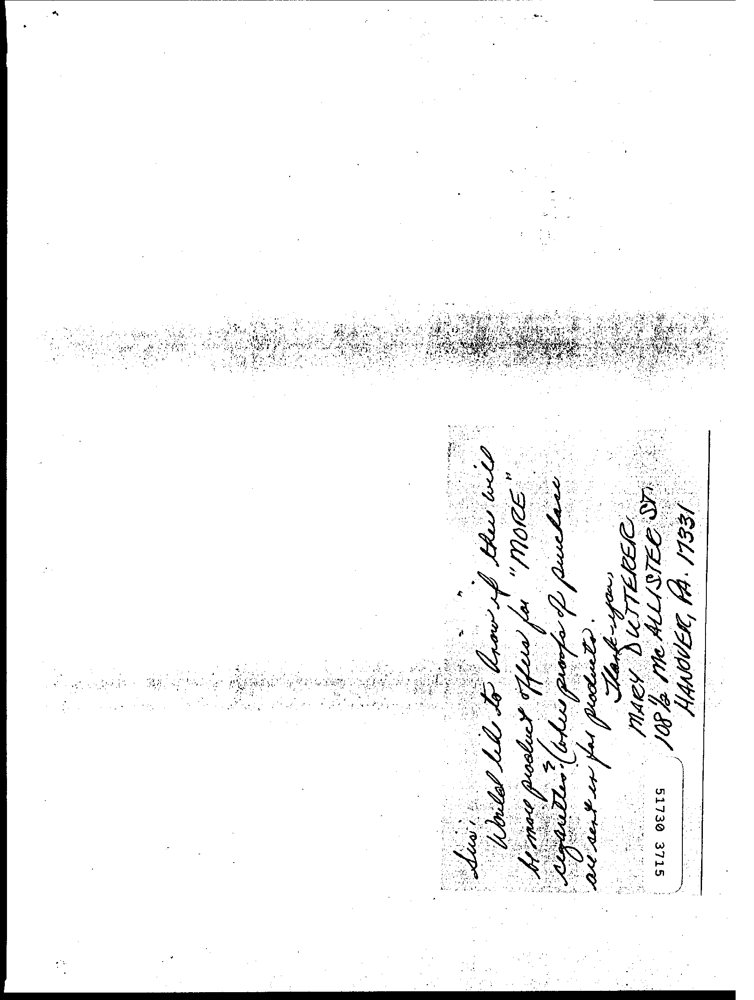 Sirs:
Would like to know if there will
be more product offers for "MORE"
cigarettes? (where proofs of purchase
are sent in for products.
Thank-you,
MARY DUTTERER
108½ Mc ALLISTER ST.
HANOVER, PA. 17331
51730 3715